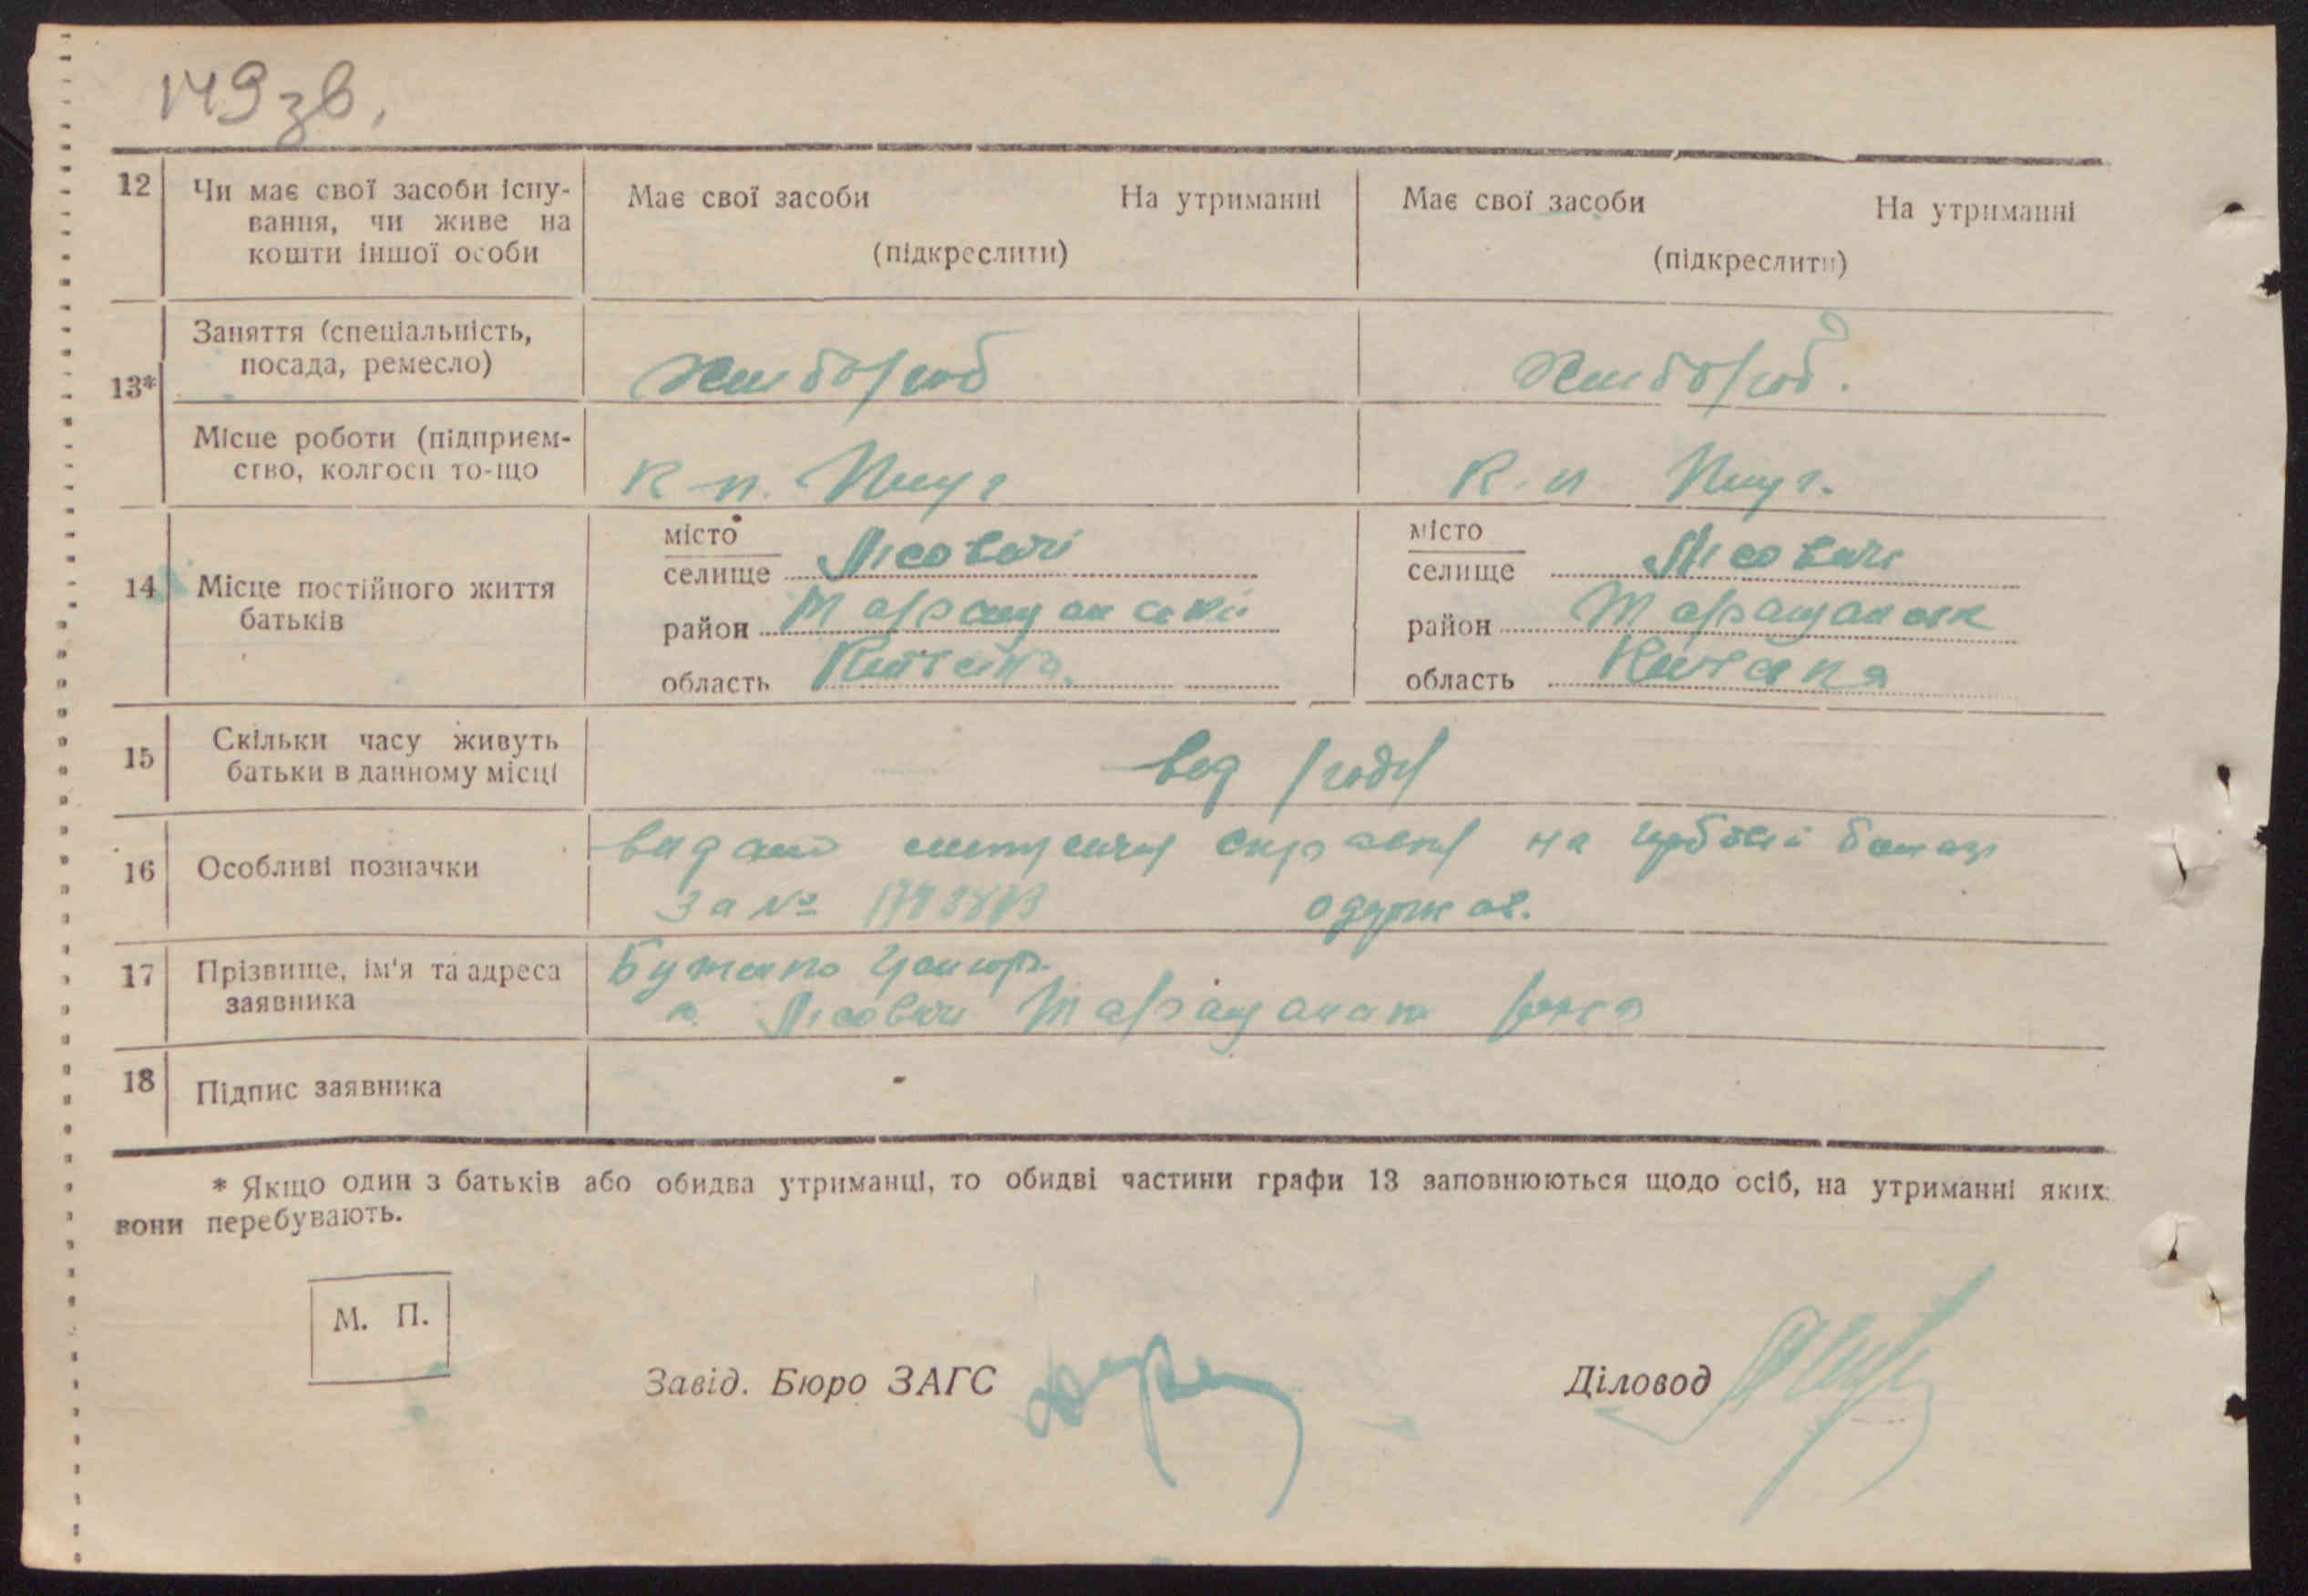 149 зв.
12 Чи має свої засоби існу-
вання, чи живе на
кошти іншої особи
Має свої засоби На утриманні
(підкреслити)
Має свої засоби На утриманні
(підкреслити)
13*
Заняття (спеціальність,
посада, ремесло)
Хлібороб
Хлібороб.
Місце роботи (підприєм-
ство, колгосп то-що
К п. Плуг
К. п Плуг.
14 Місце постійного життя
батьків
місто
селище Лісовичі
район Таращанські
область Київська
місто
селище Лісовичі
район Таращанськ
область
15 Скільки часу живуть
батьки в данному місці
від роду
16 Особливі позначки
видано справку на
за №
17 Прізвище, ім'я та адреса
заявника
с. Лісовичі
18 Підпис заявника
* Якщо один з батьків або обидва утриманці, то обидві частини графи 13 заповнюються щодо осіб, на утриманні яких
вони перебувають.
М. П.
Завід. Бюро ЗАГС
Діловод